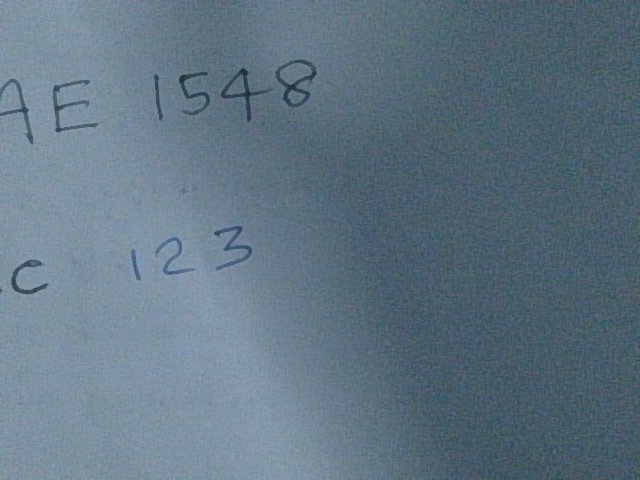 AE 1548
c 123